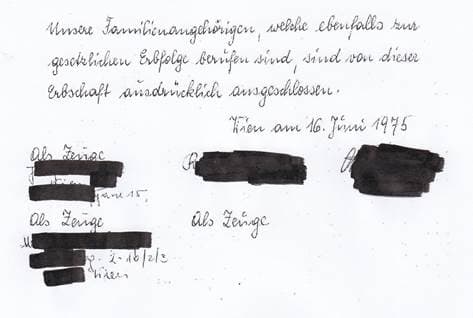 Unsere Familienangehörigen, welche ebenfalls zur
gesetzlichen Erbfolge berufen sind, sind von dieser
Erbschaft ausdrücklich ausgeschlossen.
Wien am 16. Juni 1975
Als Zeuge
Wien
15,
Als Zeuge
Als Zeuge
2-16/2/3
Wien